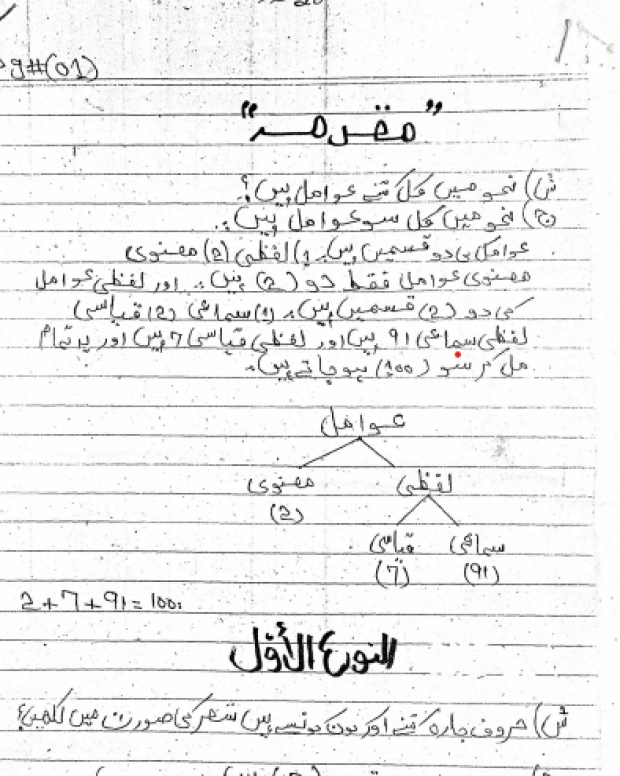 Pg#(01)
”مقدمہ“
س) نحو میں کل کتنے عوامل ہیں؟
ج) نحو میں کل سو عوامل ہیں۔
عوامل کی دو قسمیں ہیں۔ 1) لفظی (2) معنوی
معنوی عوامل فقط دو (2) ہیں۔ اور لفظی عوامل
کی دو (2) قسمیں ہیں۔ (1) سماعی (2) قیاسی
لفظی سماعی 91 ہیں اور لفظی قیاسی 7 ہیں اور یہ تمام
مل کر سو (100) ہو جاتے ہیں۔
عوامل
لفظی معنوی
(2)
سماعی قیاسی
(91) (7)
2+7+91=100
النوع الأوّل
س) حروف جارہ کتنے اور کون کونسے ہیں شعر کی صورت میں لکھیں؟